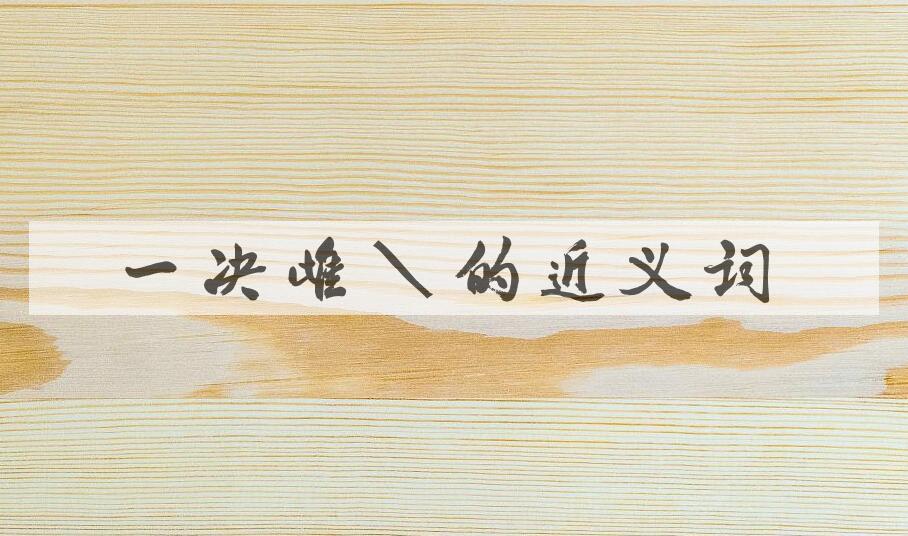 一决雌\的近义词